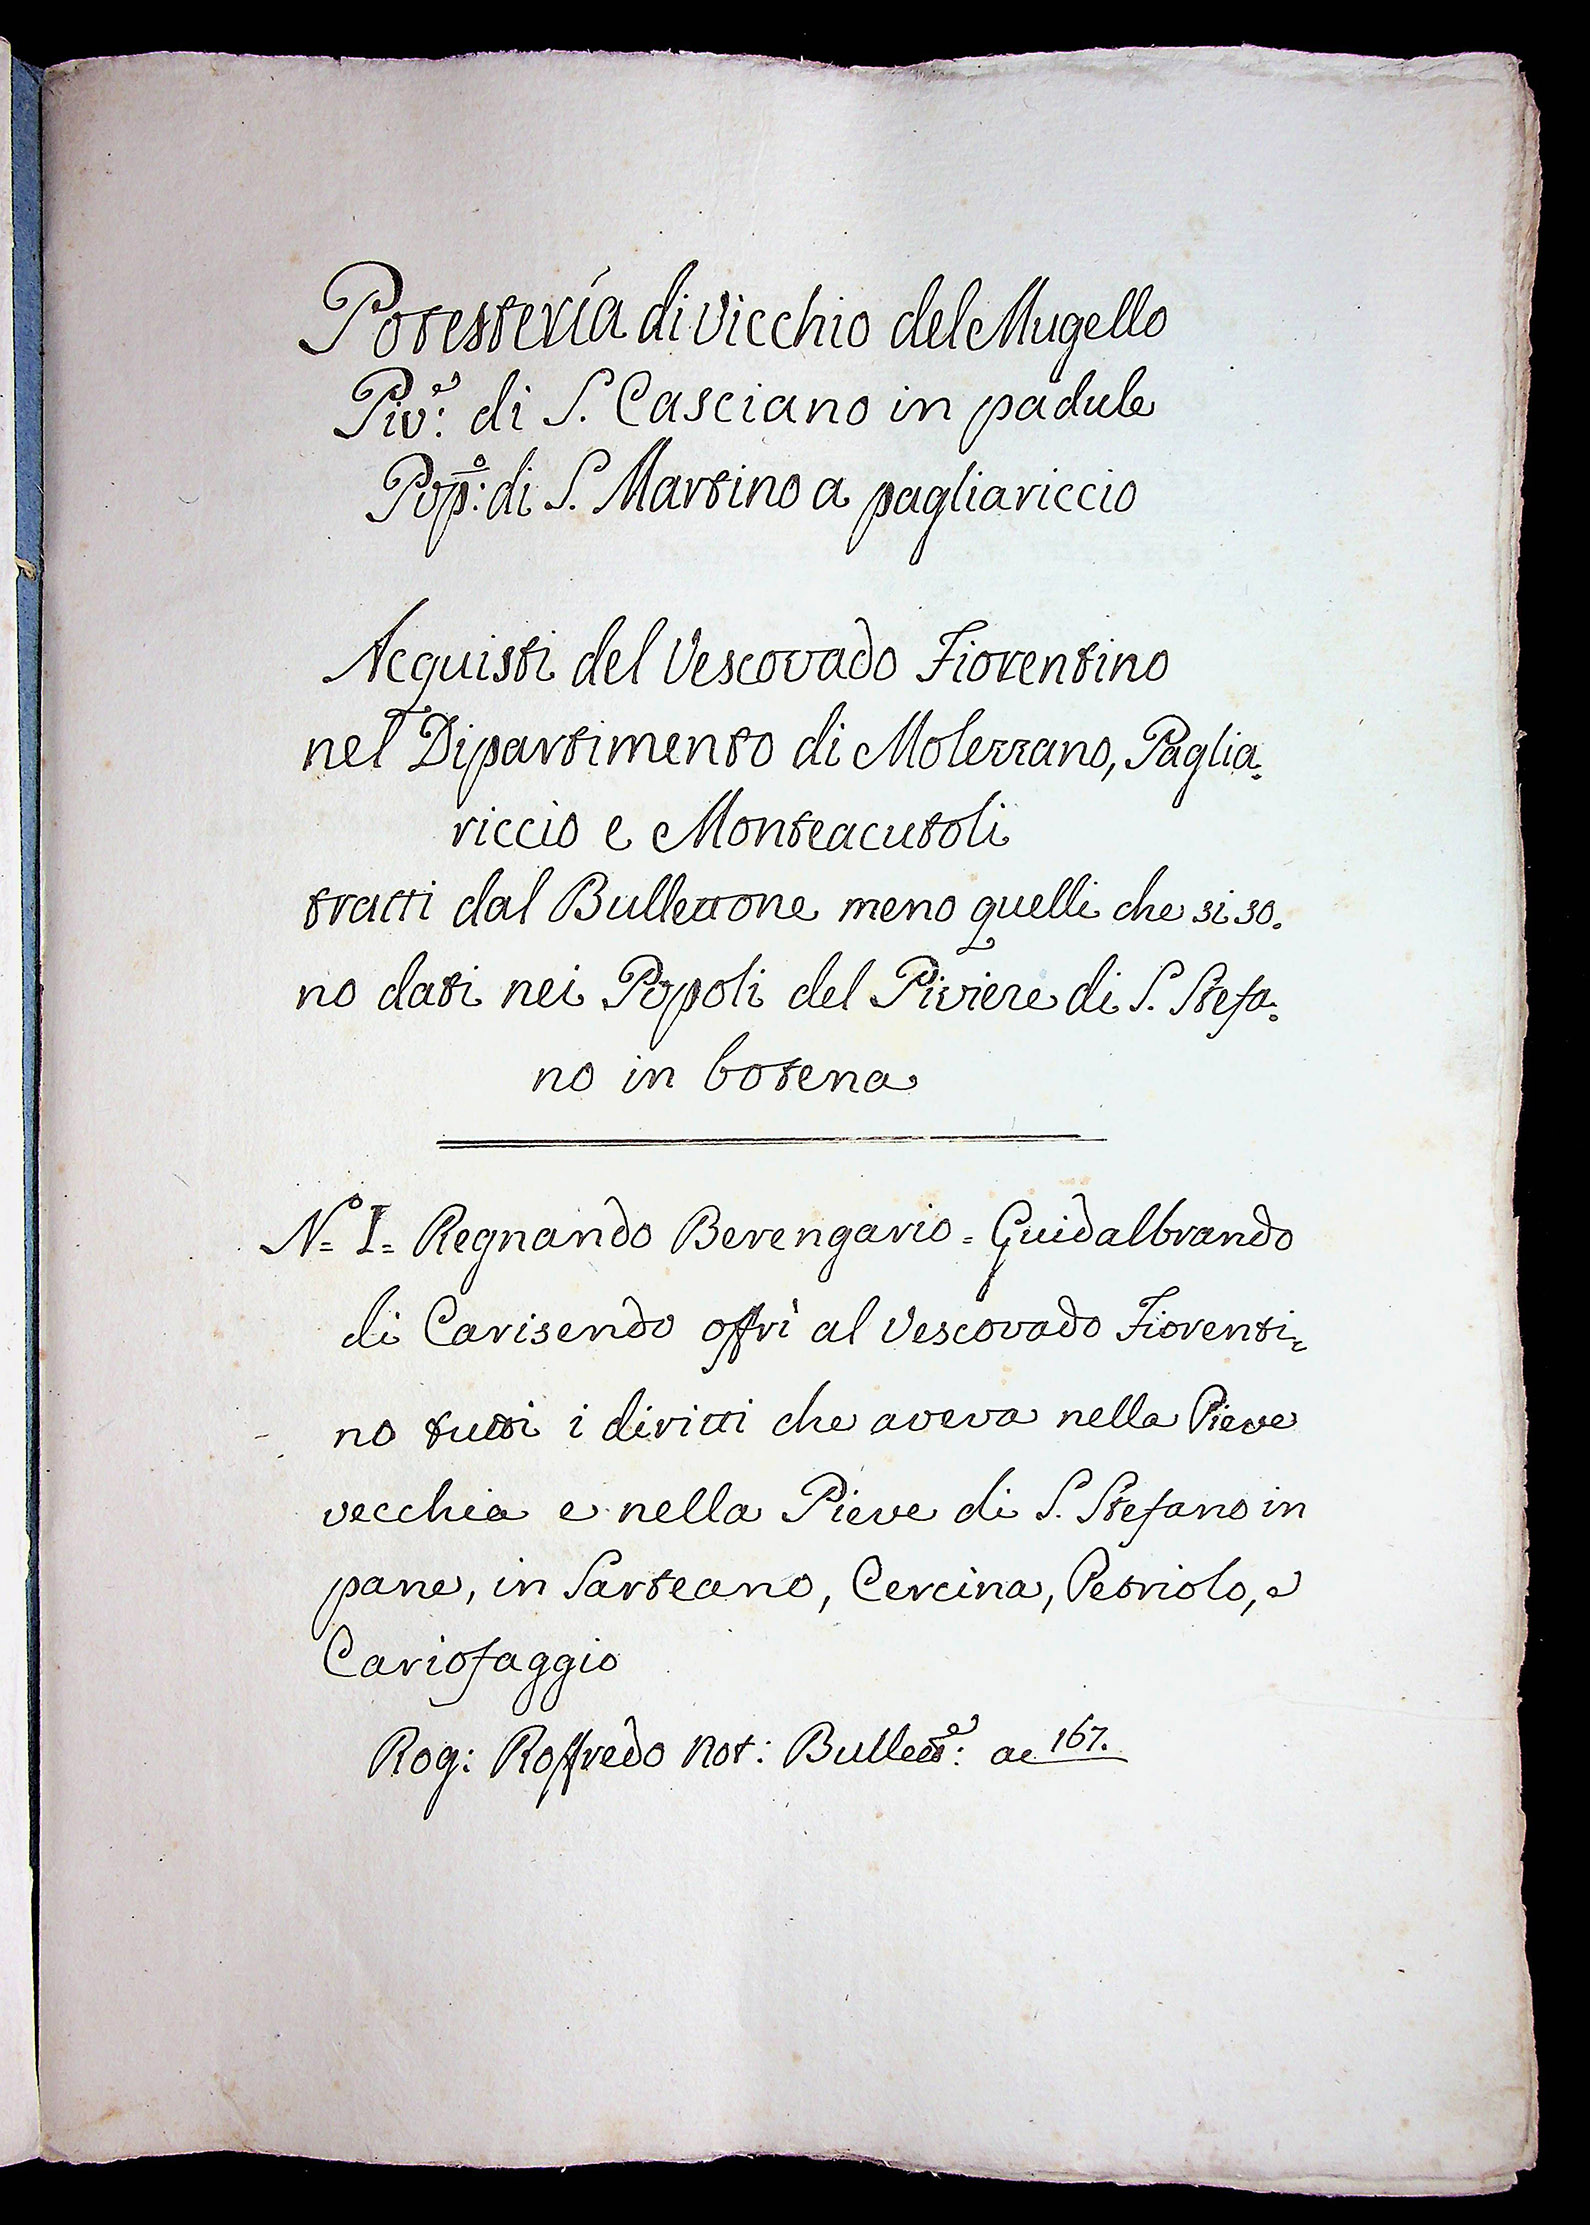 Potestería di Vicchio del Mugello
Piv.e: di S. Casciano in padule
Pop.o: di S. Martino a pagliariccio
Acquisti del Vescovado Fiorentino
nel Dipartimento di Molezzano, Paglia=
riccio e Monteacutoli
tratti dal Bullettone meno quelli che si so=
no dati nei Popoli del Piviere di S. Stefa=
no in botena
N.o I= Regnando Berengario = Guidalbrando
di Carisendo offrì al Vescovado Fiorenti=
no tutti i diritti che aveva nella Pieve
vecchia e nella Pieve di S. Stefano in
pane, in Sarteano, Cercina, Petriolo, e
Cariofaggio
Rog: Roffredo Not: Bullett.e: ac 167.